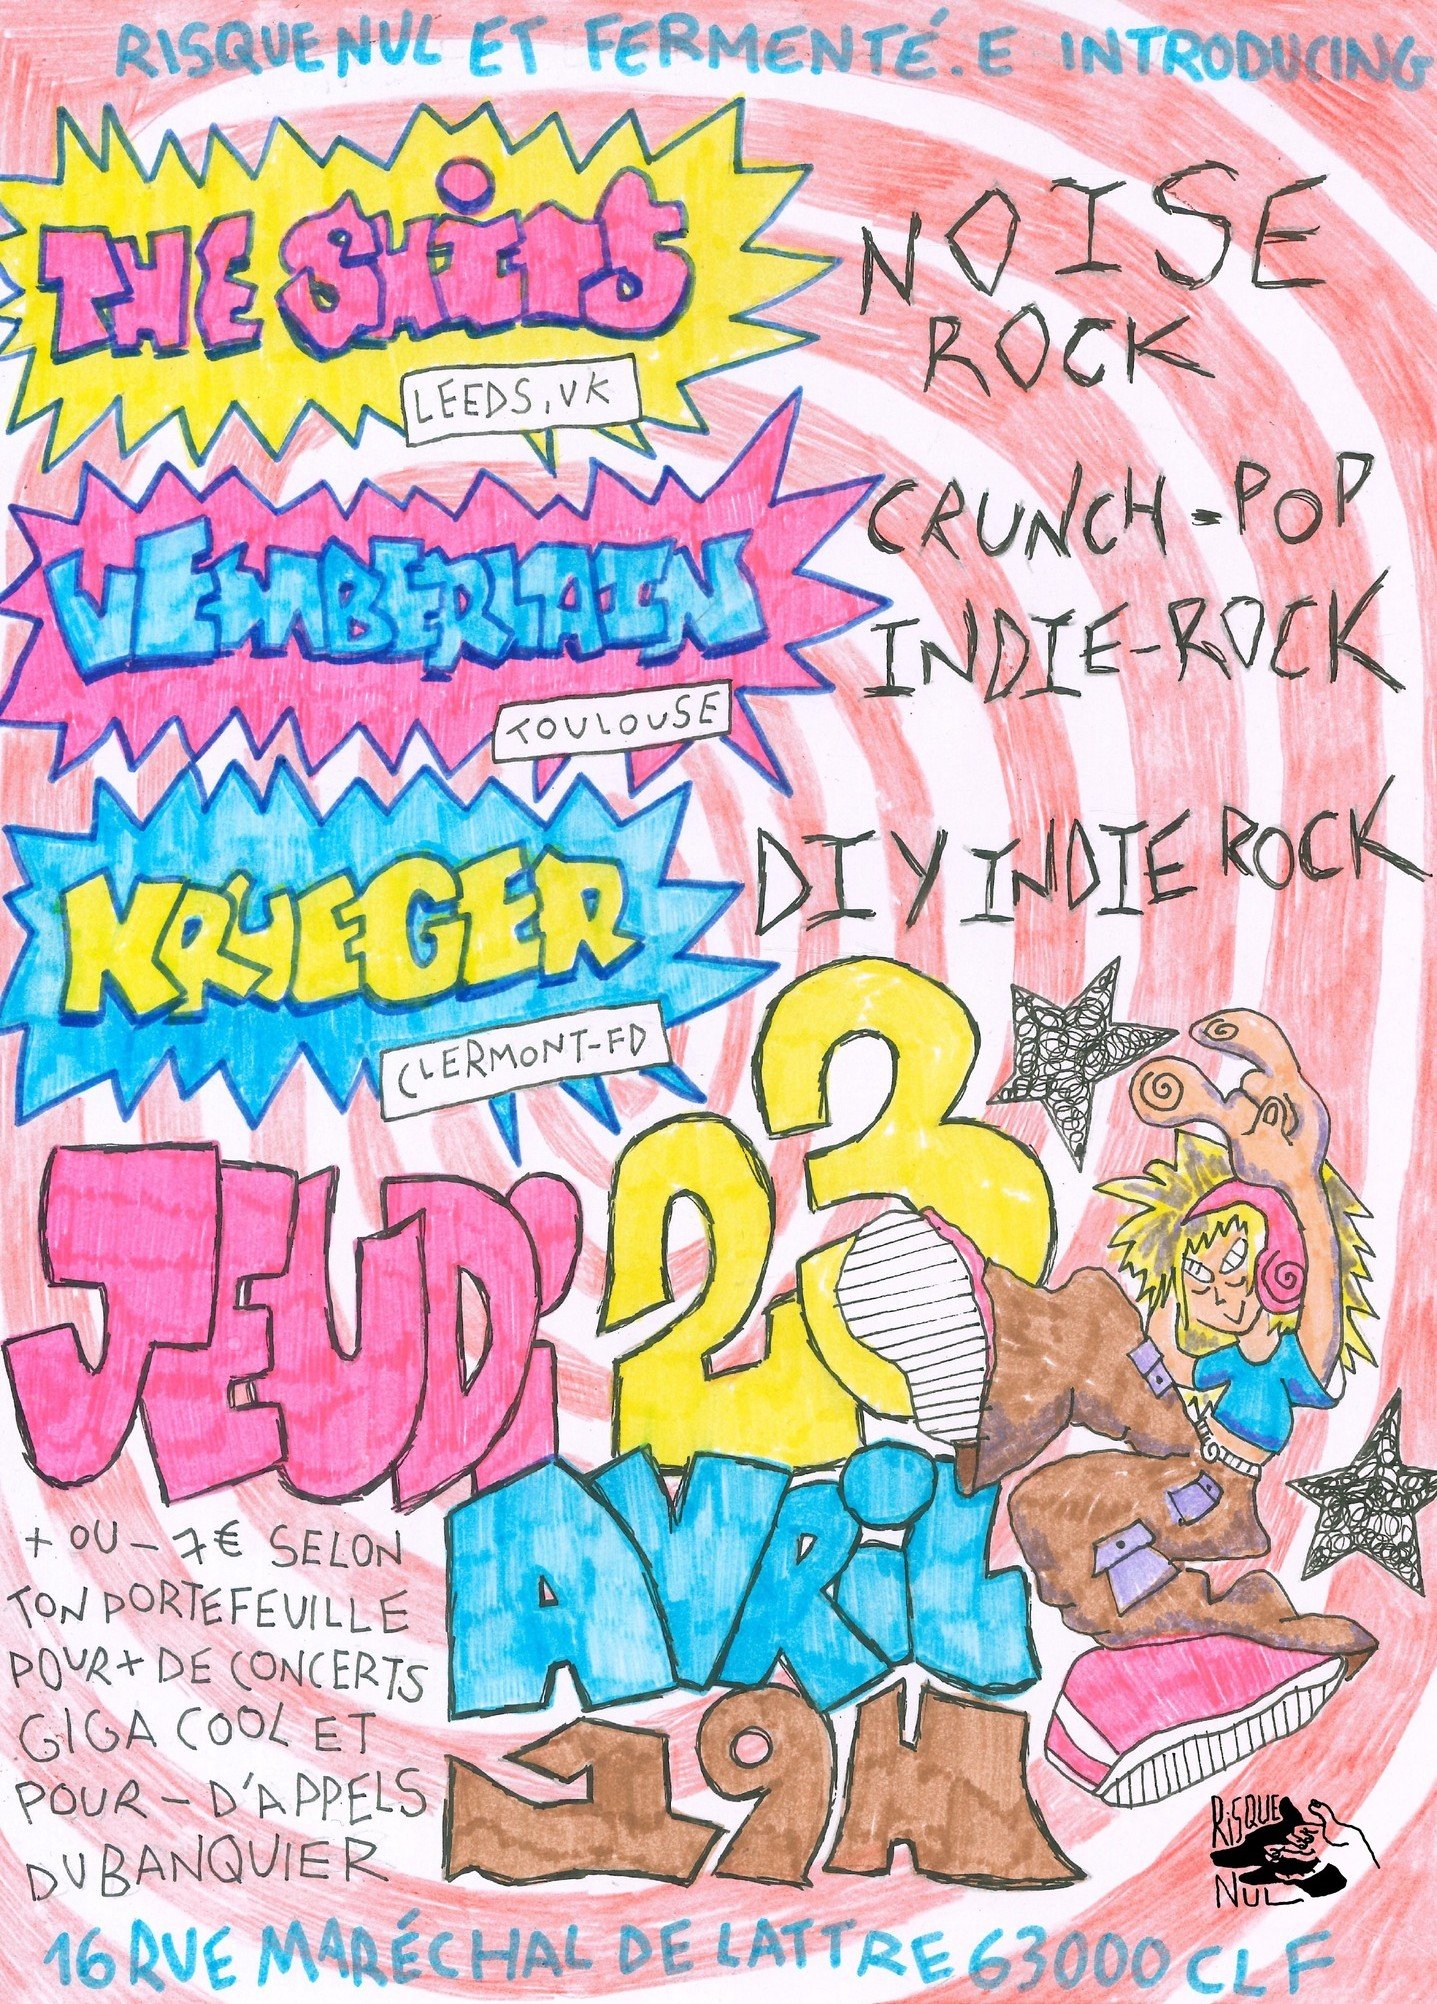 RISQUENUL ET FERMENTÉ.E INTRODUCING
THE SHITS
LEEDS, UK
NOISE
ROCK
JEWBERLAIN
TOULOUSE
CRUNCH-POP
INDIE-ROCK
KRYEGER
CLERMONT-FD
DIY INDIE ROCK
JEUDI 23
AVRIL
19H
+ OU - 7€ SELON
TON PORTEFEUILLE
POUR + DE CONCERTS
GIGA COOL ET
POUR - D'APPELS
DU BANQUIER
RISQUE
NUL
16 RUE MARÉCHAL DE LATTRE 63000 CLF